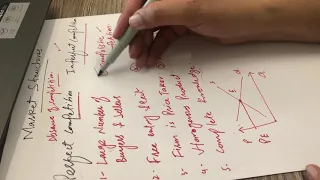 Market Structures
Absence of Competition
Perfect Competition
Imperfect Competition
1- Large Number of
Buyers & Sellers
2- Free entry & exit
3- Firm is Price Taker
4- Homogenous Product
5- Complete Knowledge
P
PE
E
S